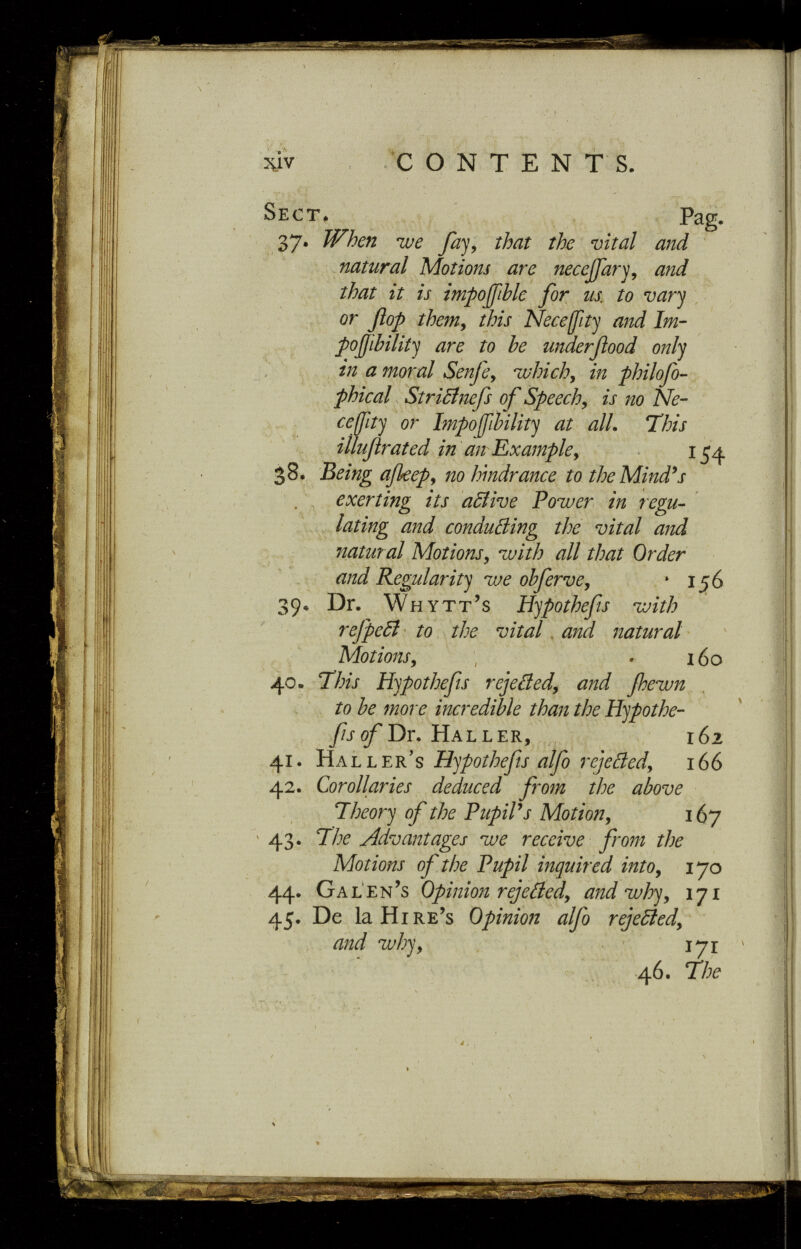 xiv CONTENTS.
Sect. Pag.
37. When we ſay, that the vital and
natural Motions are neceſſary, and
that it is impoſſible for us to vary
or ſtop them, this Neceſſity and Im-
poſſibility are to be underſtood only
in a moral Senſe, which, in philoſo-
phical Strictneſs of Speech, is no Ne-
ceſſity or Impoſſibility at all. This
illuſtrated in an Example, 154
38. Being aſleep, no hindrance to the Mind's
exerting its active Power in regu-
lating and conducting the vital and
natural Motions, with all that Order
and Regularity we obſerve, 156
39. Dr. Whytt's Hypotheſis with
reſpect to the vital and natural
Motions, 160
40. This Hypotheſis rejected, and ſhewn
to be more incredible than the Hypothe-
ſis of Dr. Haller, 162
41. Haller's Hypotheſis alſo rejected, 166
42. Corollaries deduced from the above
Theory of the Pupil's Motion, 167
43. The Advantages we receive from the
Motions of the Pupil inquired into, 170
44. Galen's Opinion rejected, and why, 171
45. De la Hire's Opinion alſo rejected,
and why, 171
46. The